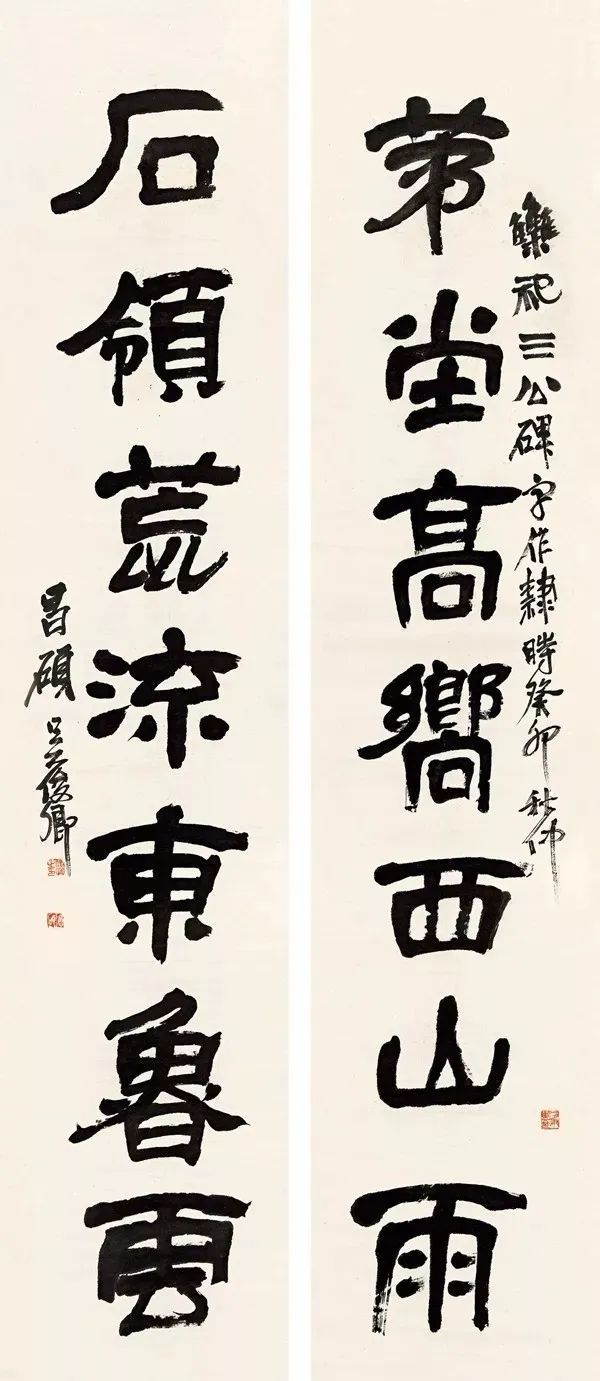 集祀三公碑字作隸時癸卯秋仲
苐堂高嚮西山雨
石領荒流東魯雲
昌碩吳俊卿